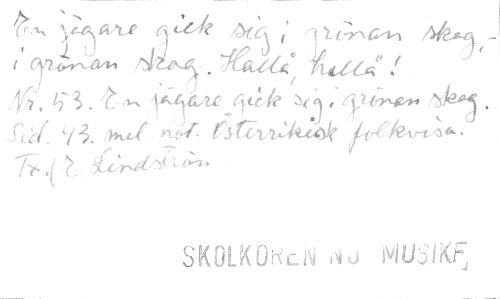 En jägare gick sig i grönan skog,-
i grönan skog. Hallå, hallå!
Nr. 53. En jägare gick sig i grönan skog.
Sid. 43. mel not. Österrikisk folkvisa.
Tx. E. Lindström
SKOLKÖREN NU MUSIKF